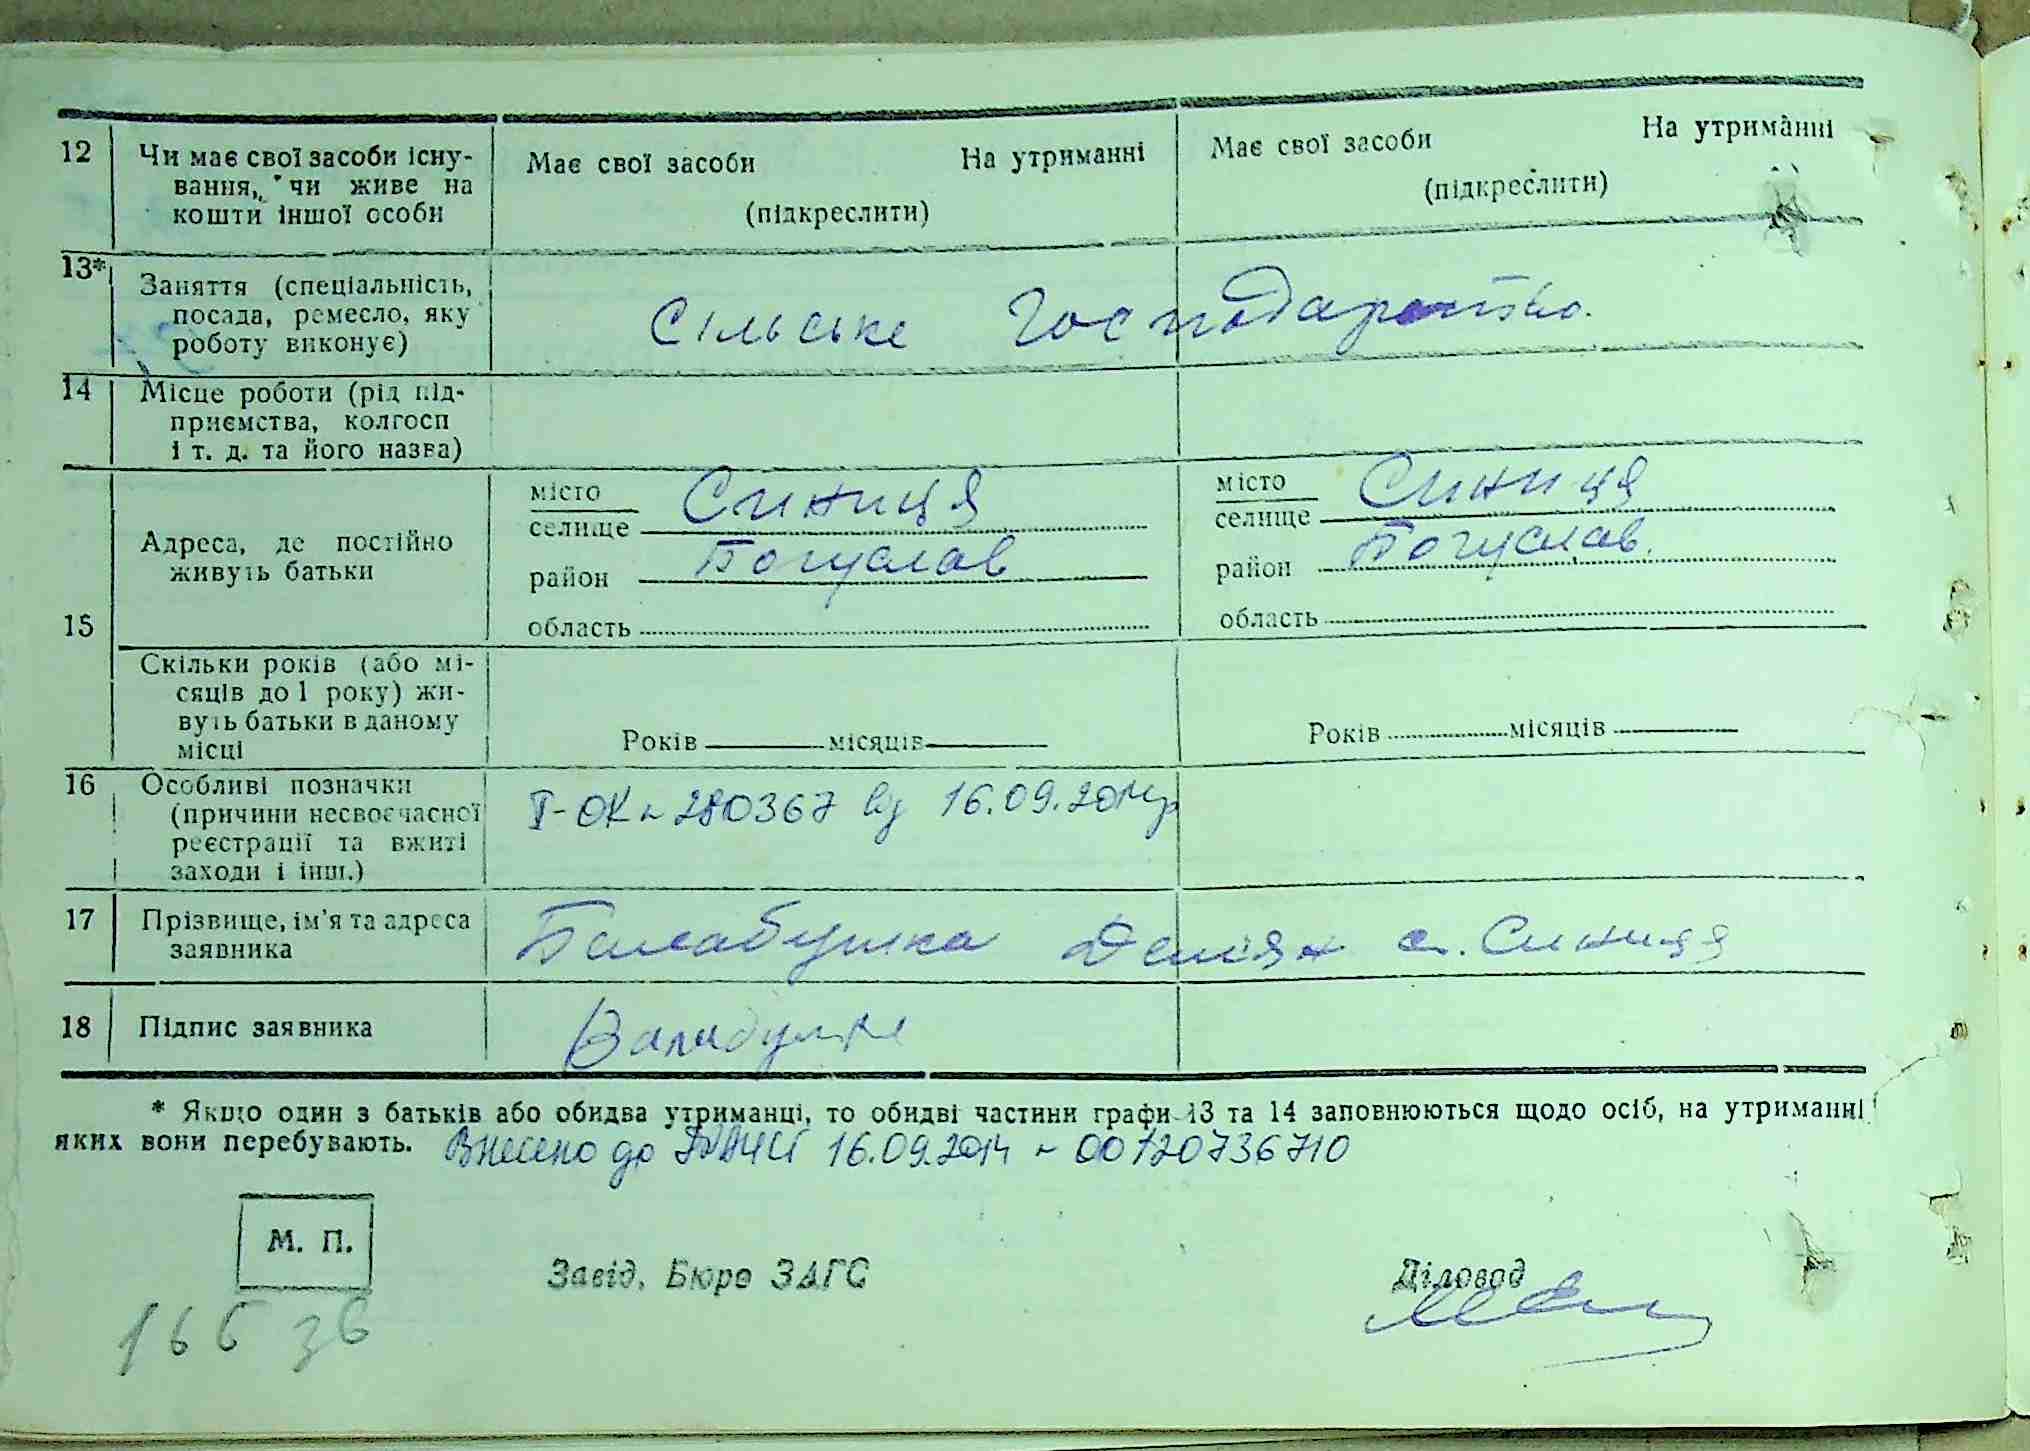 12 Чи має свої засоби існу-
вання, чи живе на
кошти іншої особи
Має свої засоби На утриманні
(підкреслити)
Має свої засоби На утриманні
(підкреслити)
13* Заняття (спеціальність,
посада, ремесло, яку
роботу виконує)
Сільське Господарство.
14 Місце роботи (рід під-
приємства, колгосп
і т. д. та його назва)
15 Адреса, де постійно
живуть батьки
місто
селище Синиця
район Богуслав
область
місто
селище Синиця
район Богуслав
область
Скільки років (або мі-
сяців до 1 року) жи-
вуть батьки в даному
місці
Років місяців
Років місяців
16 Особливі позначки
(причини несвоєчасної
реєстрації та вжиті
заходи і інш.)
І-ОК № 280367 від 16.09.2014р
17 Прізвище, ім'я та адреса
заявника
Балабушка Демʼян с. Синиця
18 Підпис заявника
Балабушка
* Якщо один з батьків або обидва утриманці, то обидві частини графи 13 та 14 заповнюються щодо осіб, на утриманні
яких вони перебувають. Внесено до 16.09.2014 № 00120736710
М. П.
Завід. Бюро ЗАГС Діловод
165 зв